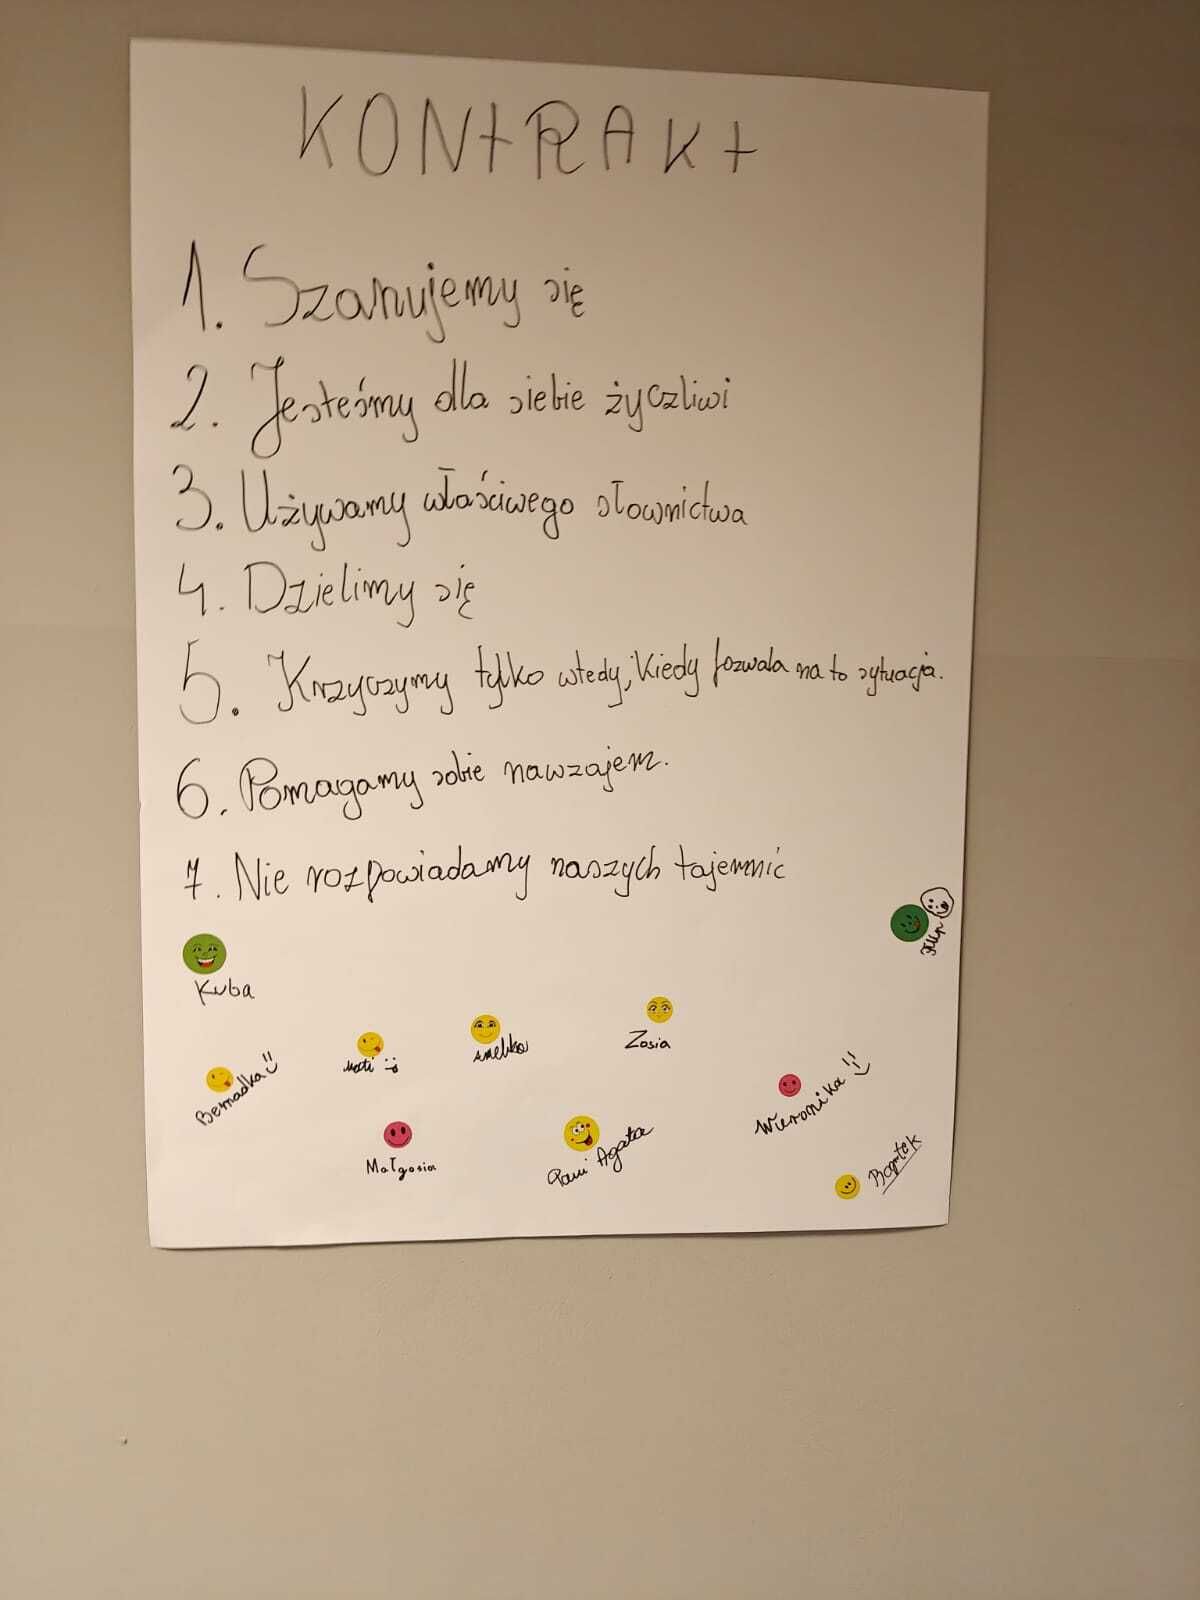 KONtRAKt
1. Szanujemy się
2. Jesteśmy dla siebie życzliwi
3. Używamy właściwego słownictwa
4. Dzielimy się
5. Krzyczymy tylko wtedy, kiedy pozwala na to sytuacja.
6. Pomagamy sobie nawzajem.
7. Nie rozpowiadamy naszych tajemnic
Filip
Kuba
Zosia
Amelka
Mati :)
Bernadka :)
Weronika :)
Małgosia
Pani Agata
Bartek